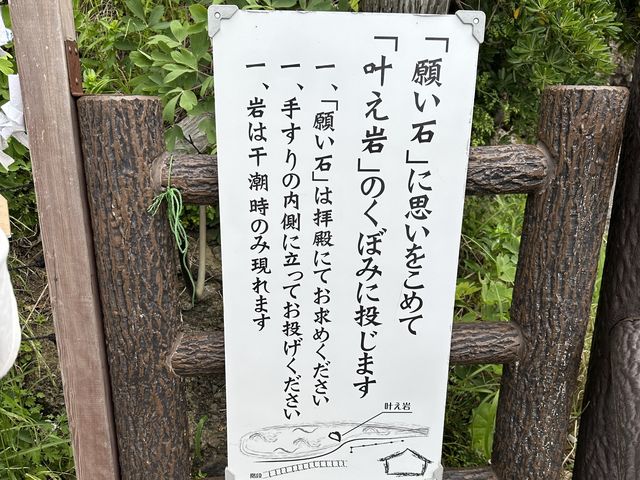 「願い石」に思いをこめて
「叶え岩」のくぼみに投じます
一、「願い石」は拝殿にてお求めください
一、手すりの内側に立ってお投げください
一、岩は干潮時のみ現れます
叶え岩
階段